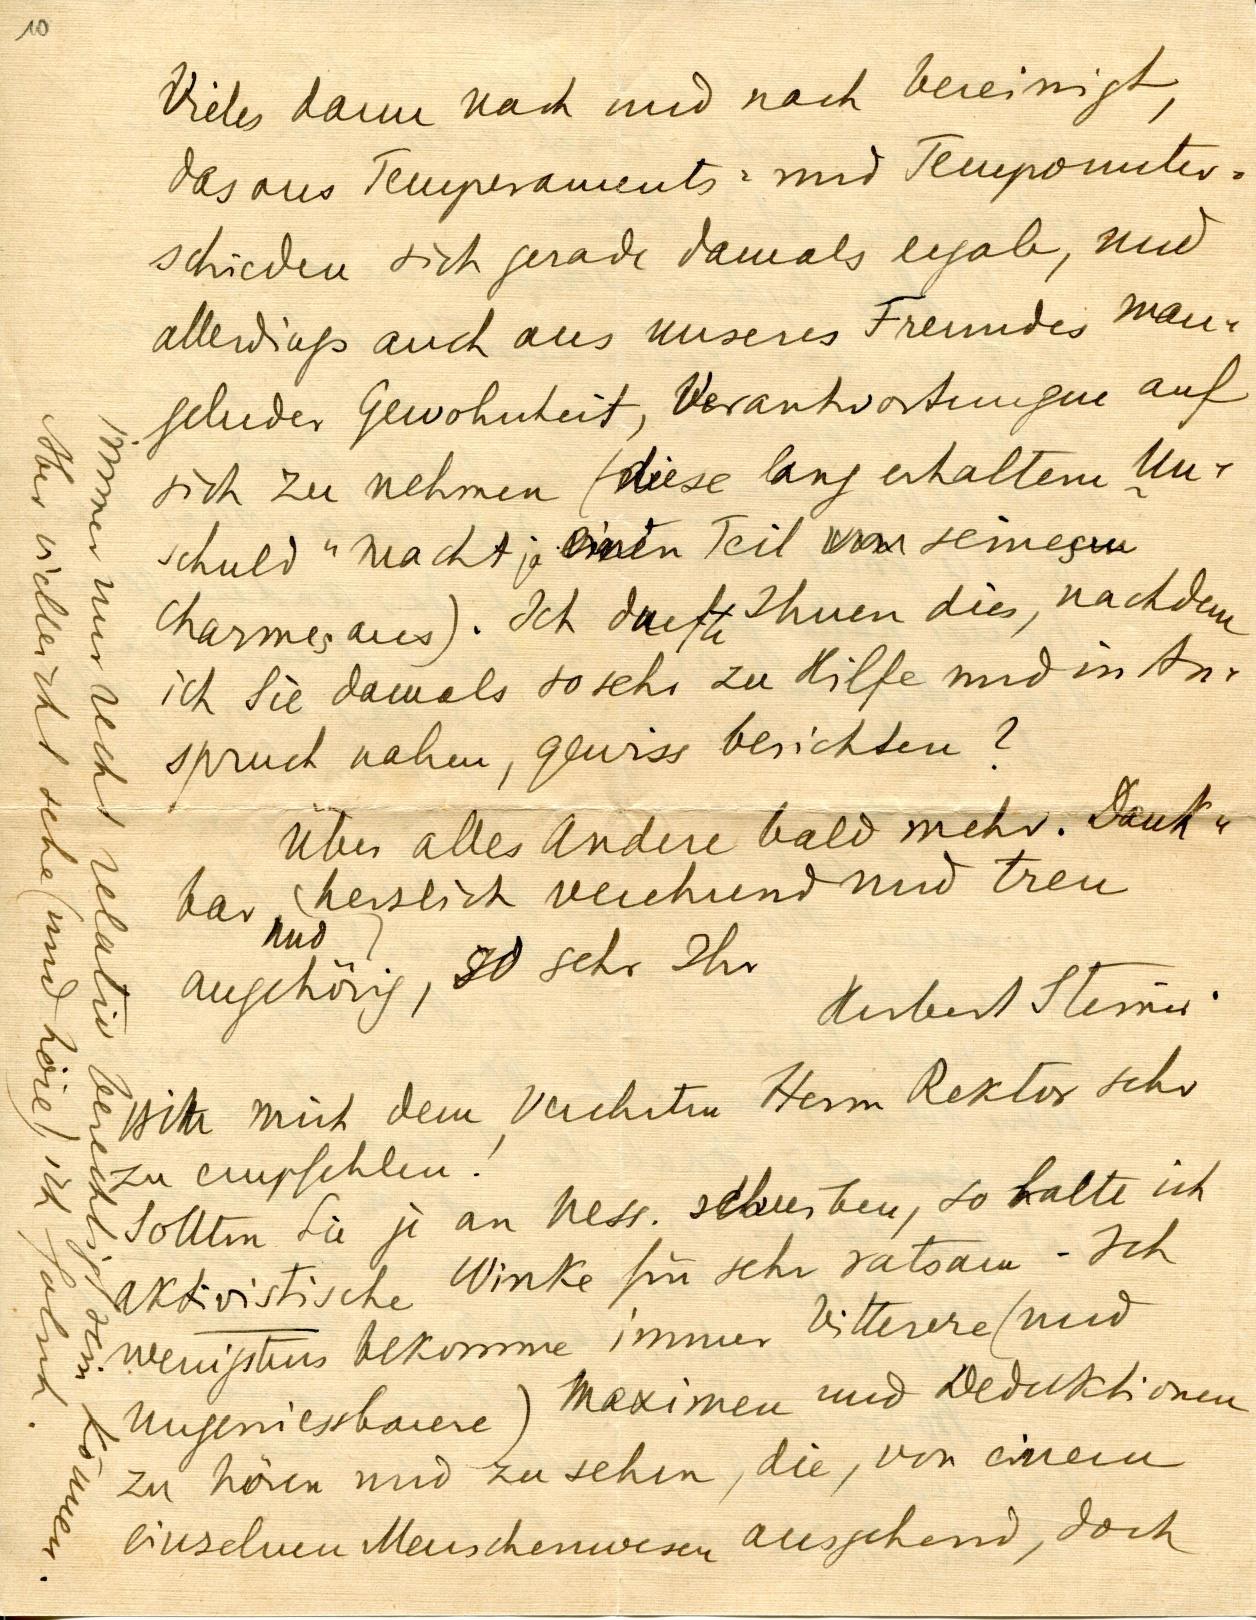 10
Vieles dann nach und nach bereinigt,
das aus Temperaments- und Tempounter-
schieden sich gerade damals ergab, und
allerdings auch aus unseres Freundes man-
gelnder Gewohnheit, Verantwortungen auf
sich zu nehmen (diese lang erhaltene Un-
schuld" macht ja einen Teil seines
Charmes aus). Ich durfte Ihnen dies, nachdem
ich Sie damals so sehr zu Hilfe und in An-
spruch nahm, gewiss berichten?
Über alles Andere bald mehr. Dank-
bar, (herzlich verehrend und treu
und)
angehörig, so sehr Ihr
Herbert Steiner.
Bitte mich dem verehrten Herrn Rektor sehr
zu empfehlen!
Sollten Sie je an Hess. schreiben, so halte ich
aktivistische Winke für sehr ratsam - Ich
wenigstens bekomme immer bitterere (und
ungeniessbarere) Maximen und Deduktionen
zu hören und zu sehen, die, von einem
einzelnen Menschenwesen ausgehend, doch
immer nur recht relativ berechtigt sein können.
Aber vielleicht sehe (und höre) ich falsch.